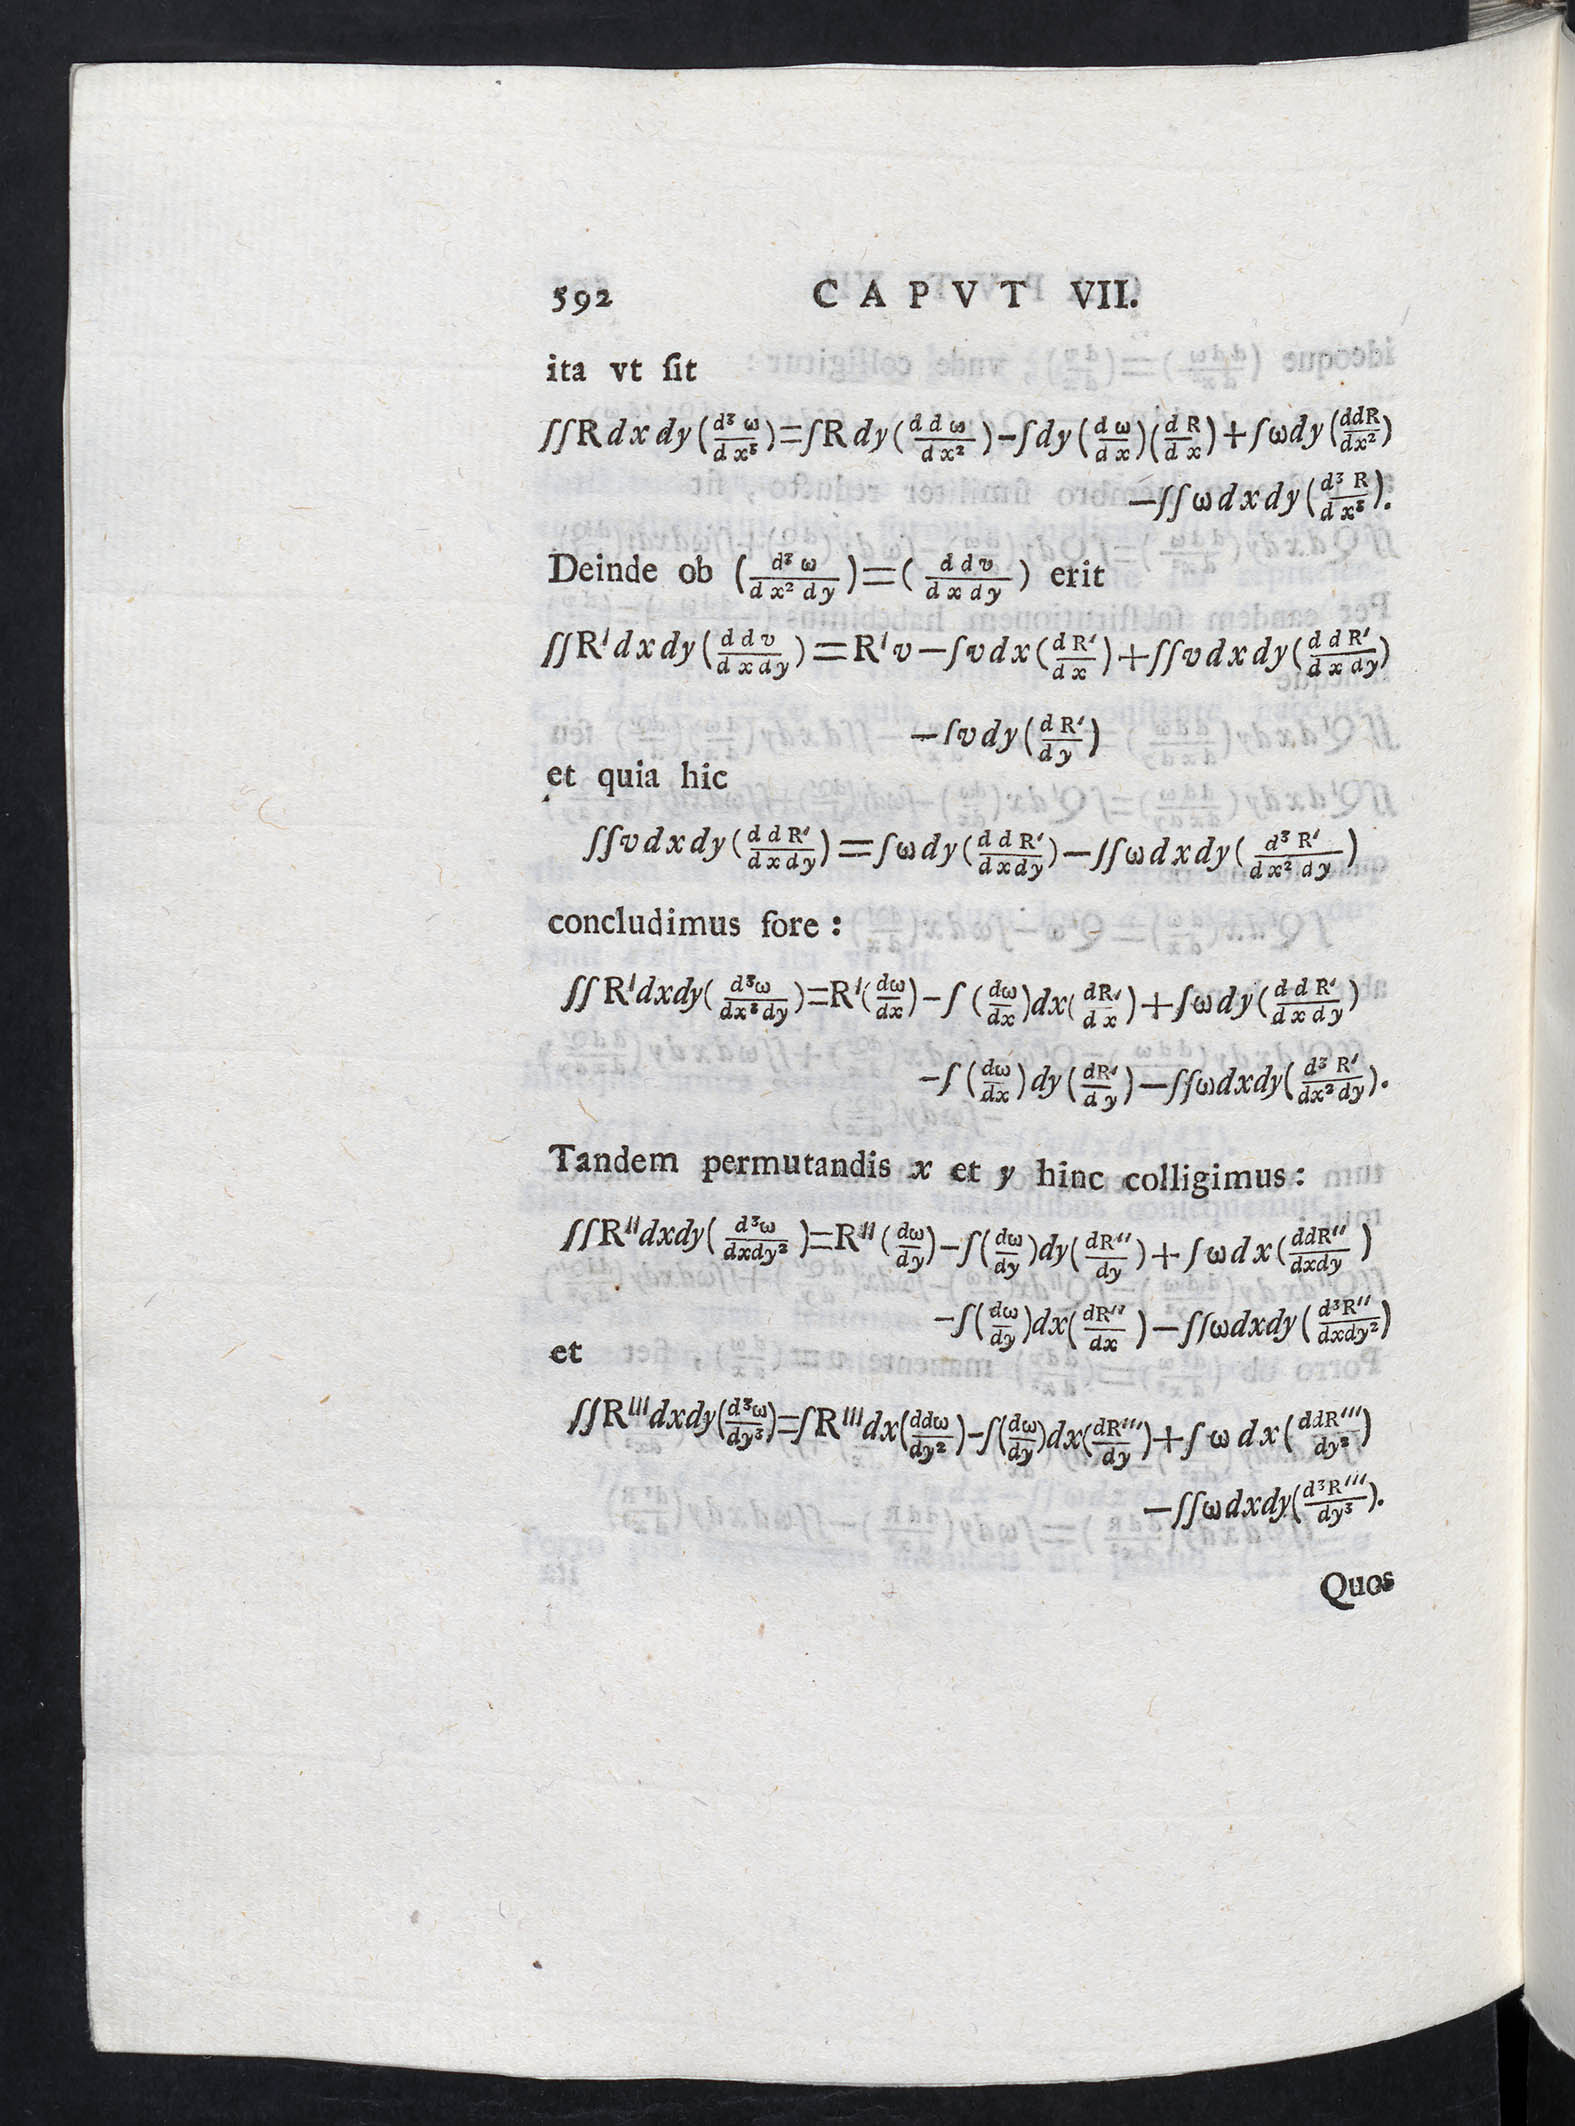 592 CAPVT VII.
ita vt ſit
∫∫R dx dy (d³ω/dx³)=∫R dy (ddω/dx²)−∫dy (dω/dx)(dR/dx)+∫ω dy (ddR/dx²)
−∫∫ω dx dy (d³R/dx³).
Deinde ob (d³ω/dx²dy)=(ddv/dxdy) erit
∫∫R' dx dy (ddv/dxdy)=R'v−∫v dx (dR'/dx)+∫∫v dx dy (ddR'/dxdy)
−∫v dy (dR'/dy)
et quia hic
∫∫v dx dy (ddR'/dxdy)=∫ω dy (ddR'/dxdy)−∫∫ω dx dy (d³R'/dx²dy)
concludimus fore:
∫∫R'dxdy(d³ω/dx²dy)=R'(dω/dx)−∫(dω/dx)dx(dR'/dx)+∫ω dy (ddR'/dxdy)
−∫(dω/dx)dy(dR'/dy)−∫∫ωdxdy(d³R'/dx²dy).
Tandem permutandis x et y hinc colligimus:
∫∫R''dxdy(d³ω/dxdy²)=R''(dω/dy)−∫(dω/dy)dy(dR''/dy)+∫ω dx (ddR''/dxdy)
−∫(dω/dy)dx(dR''/dx)−∫∫ωdxdy(d³R''/dxdy²)
et
∫∫R'''dxdy(d³ω/dy³)=∫R'''dx(ddω/dy²)−∫(dω/dy)dx(dR'''/dy)+∫ω dx (ddR'''/dy²)
−∫∫ωdxdy(d³R'''/dy³).
Quos